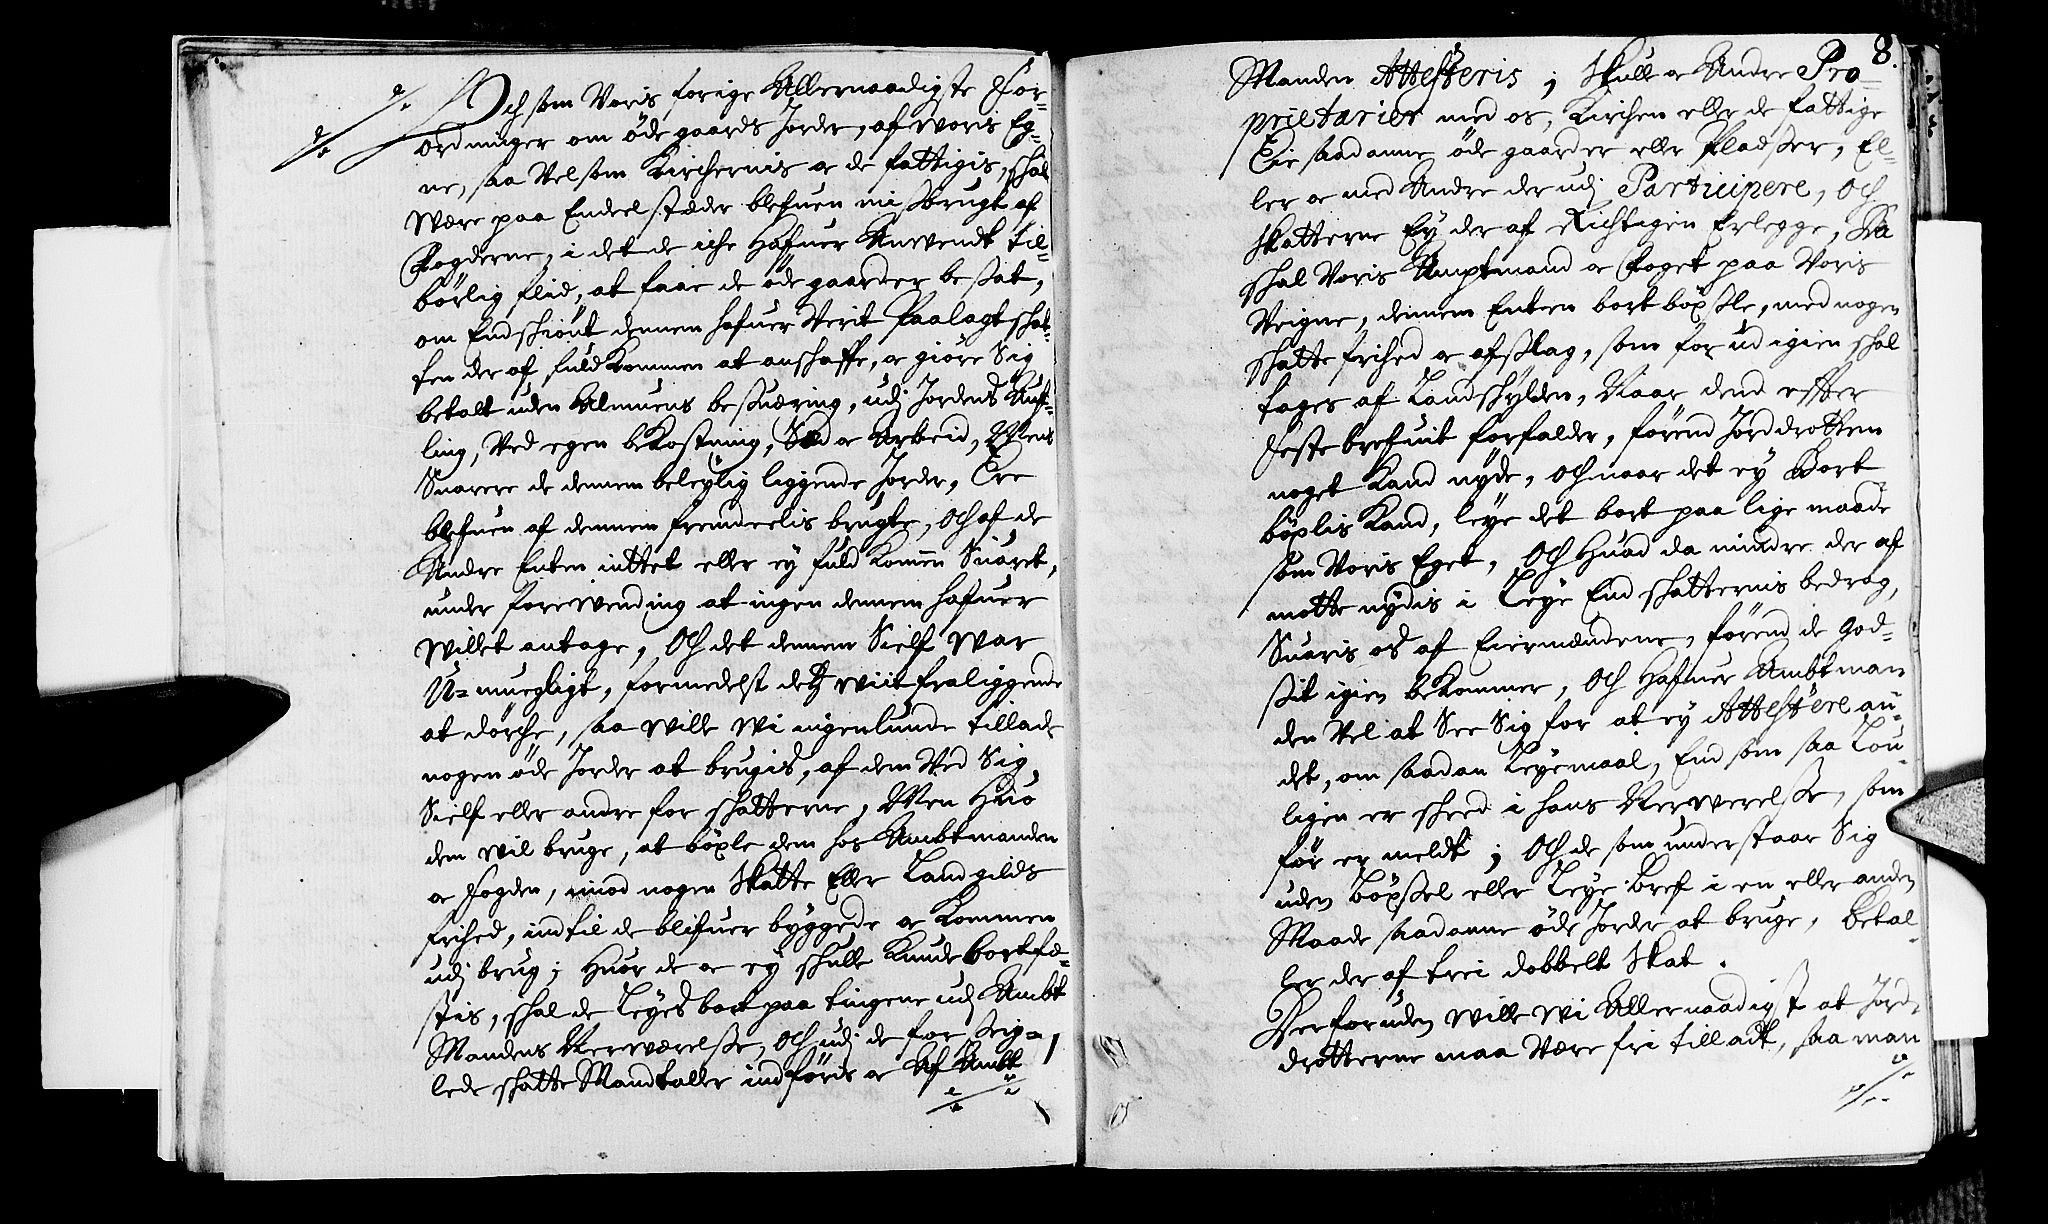 Och som Voris forige Allernaadigste For-
ordninger om öde gaards Jorder, af woris Eg-
ne, saa Vel som Kirchernis oc de fattigis, schal
Være paa Endeel stæder blefuen missbrugt af
Fogderne, i det de iche Hafuer Anvendt til-
börlig flid, at faae de öde gaarder besat,
om Endschiönt dennem hafuer Verit Paalagt schat-
ten der af fuldkommen at anschaffe, oc giöre Sig
betalt uden Almuens besuæring, udj Jordens Auf-
ling, Ved egen bekostning, Sæd oc Arbeid, Mens
Snarere de dennem beleylig liggende Jorder, Ere
blefuen af dennem fremdeelis brugte, Och af de
Andre Enten inttet eller ey fuld Komen Suaret,
under forewending at ingen dennem hafuer
Willet antage, Och det dennem Sielf War
U-muegligt, formedelst det Wiit fraliggende
at dörche, saa Wille Wi ingenlunde tillade
nogen öde Jorder at brugis, af dem Ved Sig
Sielf eller andre for schatterne, Men Huo
dem Wil bruge, at böxle dem hos Ambtmanden
oc fogden, imod nogen Skatte Eller Landgilds
frihed, indtil de blifuer byggede oc Kommen
udj brug; Huor de oc ey schulle Kunde bortfæ-
stis, schal de Leyes bort paa tingene udj Ambt
Mandens Nerværelsse, Och udj de forseig-
lede schatte Mandtaller indföris oc Af Ambt
8.
Manden Attesteris; Skulle Andre Pro-
prietarier med os, Kirchen eller de fattige
Eie saadanne öde gaarder eller Pladsser, El-
ler oc med Andre der udj Participere, Och
Skatterne Ey der af Richtigen Erlegge, Da
schal Voris Amptmand oc Foget paa Voris
Veigne, dennem Enten bort böxsle, med nogen
schatte frihed oc afslag, som for ud igien schal
tages af Landschylden, Naar dend effter
feste brefuit forfalder, förend Jorddrotten
noget Kand nyde, Och naar det ey Bort
böxlis Kand, leye det bort paa lige maade
som Voris Eget, Och Huad da mindre der af
motte nydis i Leye End schatternis bedrag,
Suaris os af Eiermændene, förend de God-
sit igien bekommer, Och Hafuer Ambtman
den Vel at See Sig for at ey Attestere an-
det, om saadan Leyemaal, End som saa Lou-
ligen er scheed i hans Nerwerelsse, som
för er meldt; Och de som understaar Sig
uden böxsel eller Leye bref i en eller anden
Maade saadanne öde Jorder at bruge, betal-
ler der af trei dobbelt Skat.
Der foruden Wille Wi Allernaadigst at Jord-
drotterne maa Være fri tilladt, saa man